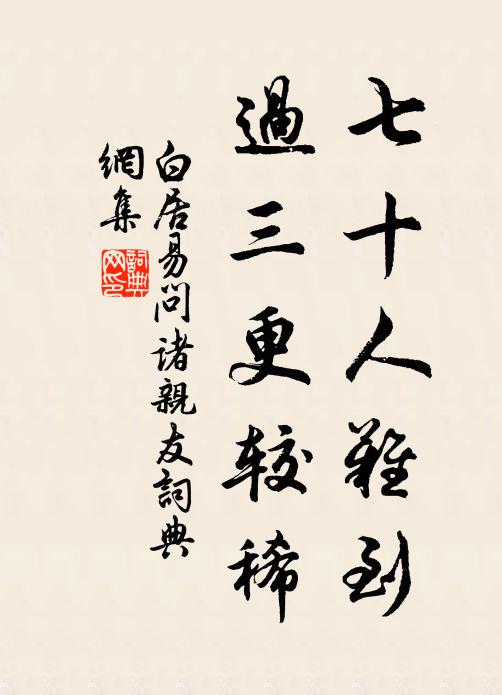 七十人難到
過三更較稀
白居易問諸親友詞典
網集
詞典
网印